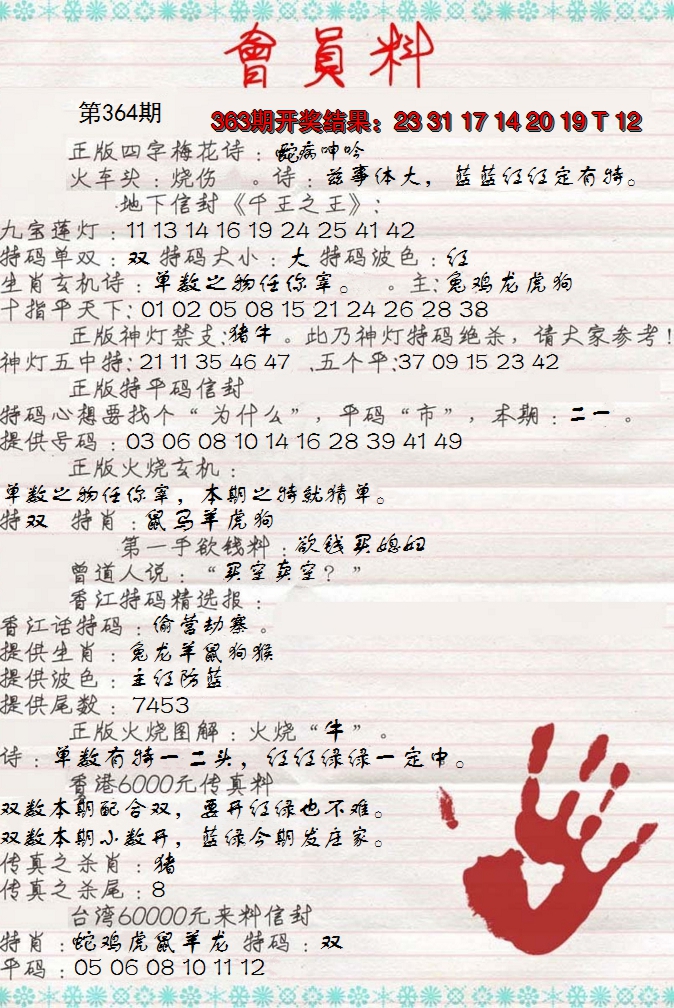 會員料
第364期
363期开奖结果：23 31 17 14 20 19 T 12
正版四字梅花诗：蛇病呻吟
火车头：烧伤 。诗：兹事体大，蓝蓝红红定有特。
地下信封《千王之王》:
九宝莲灯：11 13 14 16 19 24 25 41 42
特码单双：双 特码大小：大 特码波色：红
生肖玄机诗：单数之物任你宰。 。主:兔鸡龙虎狗
十指平天下: 01 02 05 08 15 21 24 26 28 38
正版神灯禁支:猪牛。此乃神灯特码绝杀，请大家参考!
神灯五中特: 21 11 35 46 47 .五个平:37 09 15 23 42
正版特平码信封
特码心想要找个“为什么”，平码“市”，本期：二一。
提供号码：03 06 08 10 14 16 28 39 41 49
正版火烧玄机：
单数之物任你宰，本期之特就猜单。
特双 特肖：鼠马羊虎狗
第一手欲钱料：欲钱买媳妇
曾道人说：“买空卖空？”
香江特码精选报：
香江话特码：偷营劫寨。
提供生肖：兔龙羊鼠狗猴
提供波色：主红防蓝
提供尾数：7453
正版火烧图解：火烧“牛”。
诗：单数有特一二头，红红绿绿一定中。
香港6000元传真料
双数本期配合双，要开红绿也不难。
双数本期小数开，蓝绿今期发庄家。
传真之杀肖：猪
传真之杀尾：8
台湾60000元来料信封
特肖：蛇鸡虎鼠羊龙 特码：双
平码：05 06 08 10 11 12